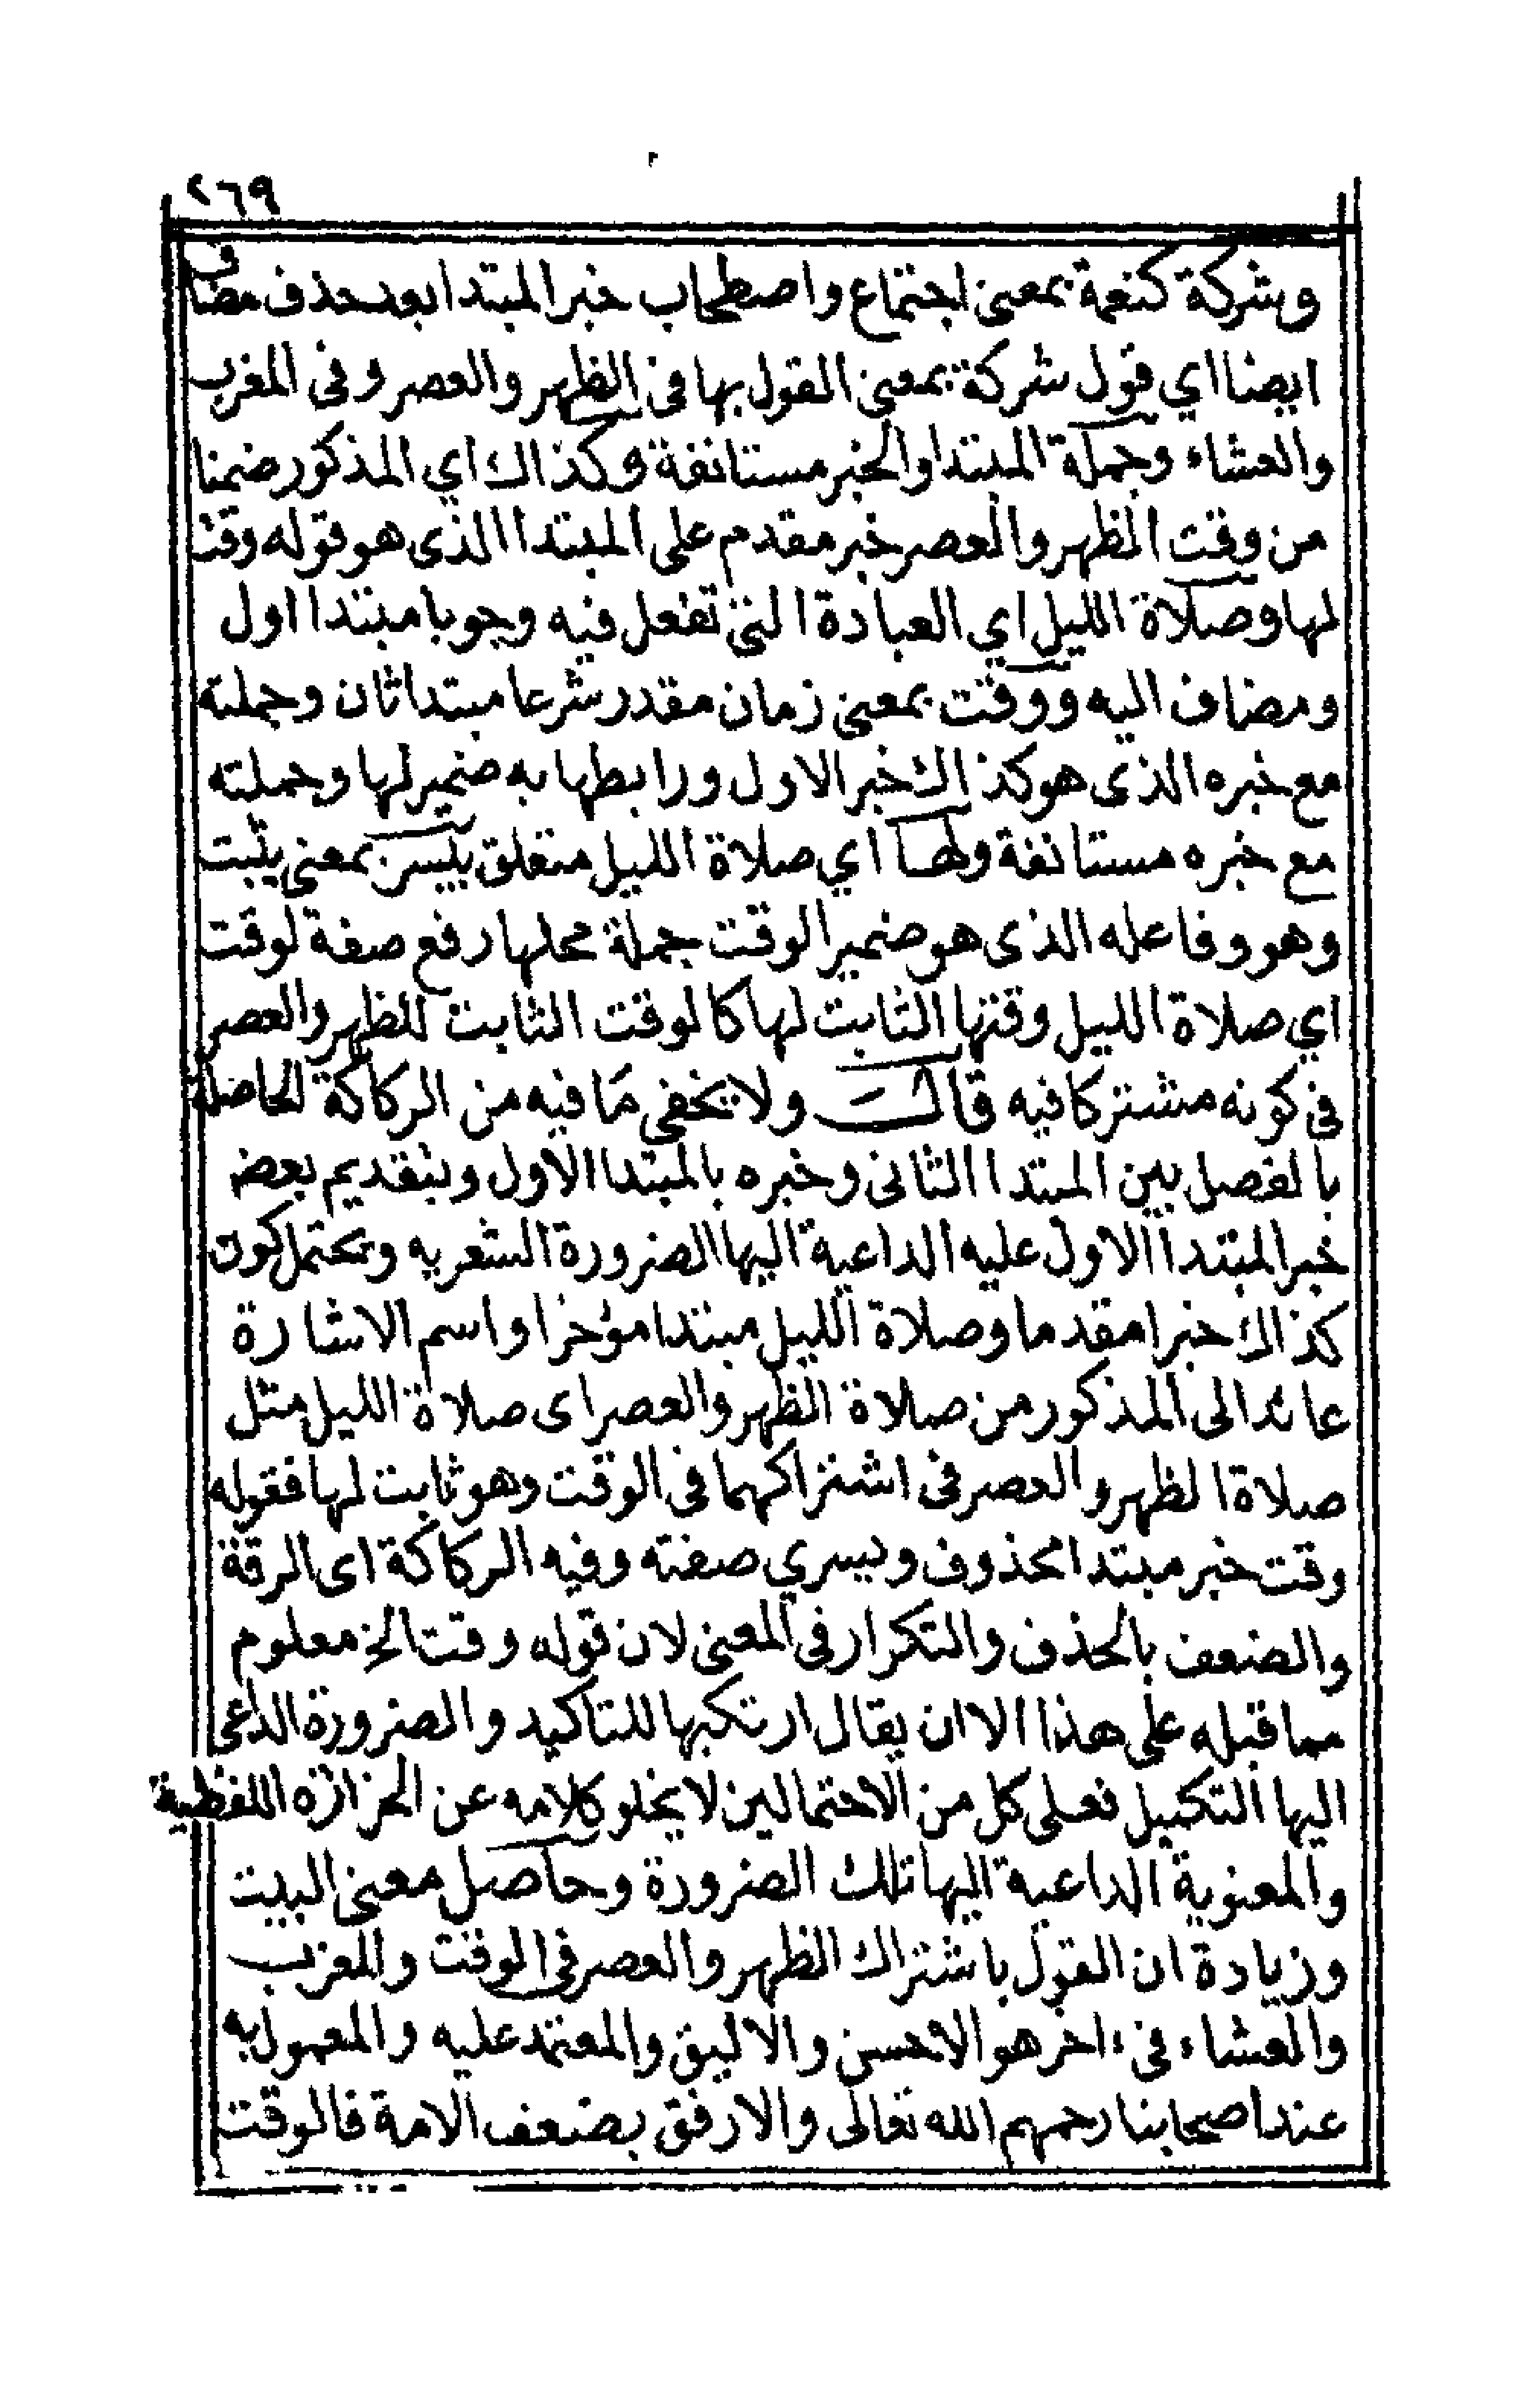 ٢٦٩
وشركة كنعمة بمعنى اجتماع واصطحاب خبر المبتدا بعد حذف مضاف
ايضا اي قول شركة بمعنى القول بها في الظهر والعصر وفى المغرب
والعشاء وجملة المبتدا والخبر مستانفة وكذاك اي المذكور ضمنا
من وقت الظهر والعصر خبر مقدم على المبتدا الذى هو قوله وقت
لها وصلاة الليل اي العبادة التى تفعل فيه وجوبا مبتدا اول
ومضاف اليه ووقت بمعنى زمان مقدر شرعا مبتدا ثان وجملته
مع خبره الذى هو كذاك خبر الاول ورابطها به ضمير لها وجملته
مع خبره مستانفة ولها اي صلاة الليل متعلق بيسر بمعنى يثبت
وهو وفاعله الذى هو ضمير الوقت جملة محلها رفع صفة لوقت
اي صلاة الليل وقتها الثابت لها كالوقت الثابت للظهر والعصر
فى كونه مشتركا فيه قال ولا يخفى ما فيه من الركاكة الحاصلة
بالفصل بين المبتدا الثانى وخبره بالمبتدا الاول وبتقديم بعض
خبر المبتدا الاول عليه الداعية اليها الضرورة الشعريه ويحتمل كون
كذاك خبرا مقدما وصلاة الليل مبتدا مؤخرا واسم الاشارة
عائد الى المذكور من صلاة الظهر والعصر اى صلاة الليل مثل
صلاة الظهر والعصر فى اشتراكهما فى الوقت وهو ثابت لها فقوله
وقت خبر مبتدا محذوف ويسري صفته وفيه الركاكة اى الرقة
والضعف بالحذف والتكرار فى المعنى لان قوله وقت الخ معلوم
مما قبله على هذا الا ان يقال ارتكبها للتاكيد والضرورة الداعى
اليها التكميل فعلى كل من الاحتمالين لا يخلو كلامه عن الحزازه اللفظية
والمعنوية الداعية اليها تلك الضرورة وحاصل معنى البيت
وزيادة ان القول باشتراك الظهر والعصر فى الوقت والمغرب
والعشاء فى ءاخر هو الاحسن والاليق والمعتمد عليه والمعمول به
عند اصحابنا رحمهم الله تعالى والارفق بضعف الامة فالوقت